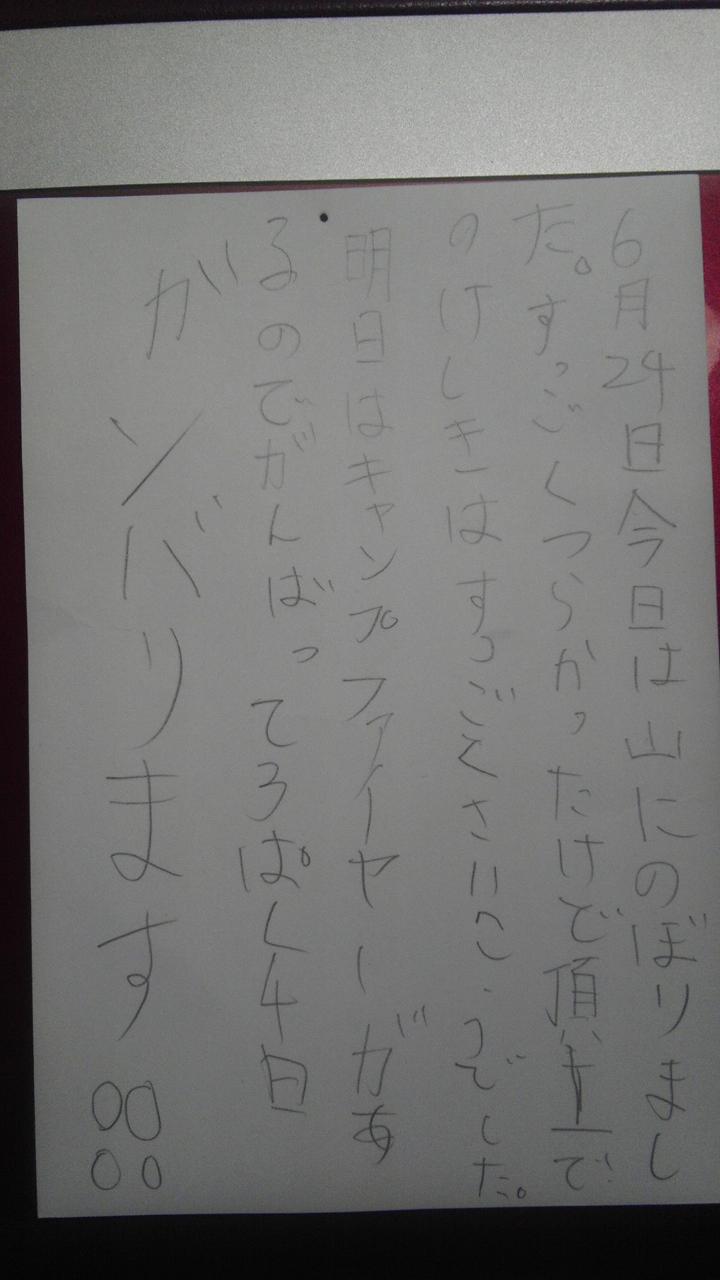 6月24日今日は山にのぼりまし
た。すっごくつらかったけど頂上で
のけしきはすっごくさいこうでした。
明日はキャンプファイヤーがあ
るのでがんばってろぱく4日
がンバリます